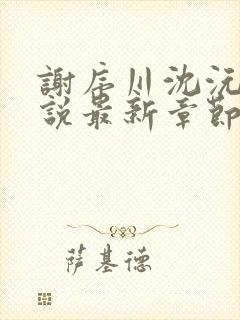 謝辰川沈沅
說最新章節
萨基德